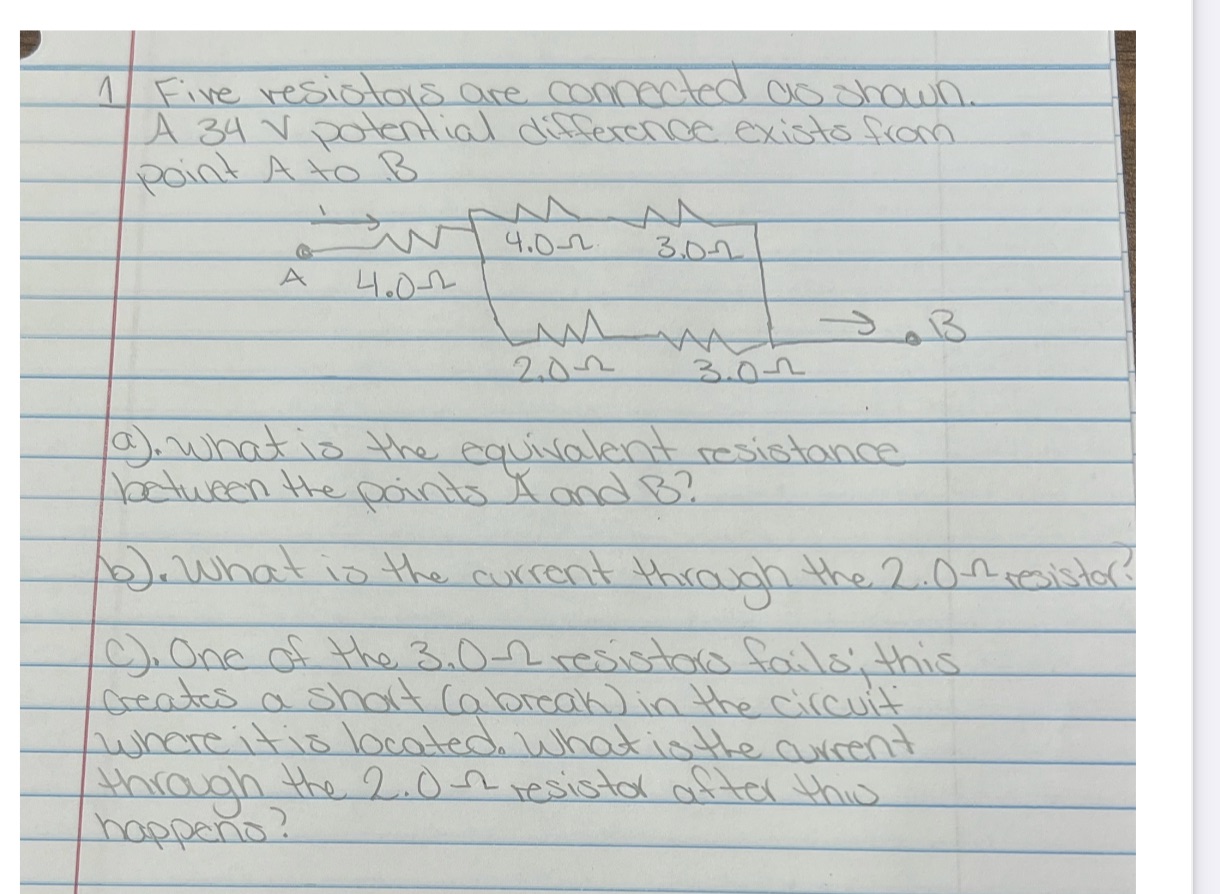 1 Five resistors are connected as shown.
A 34 V potential difference exists from
point A to B
i
4.0Ω 3.0Ω
A 4.0Ω
B
2.0Ω 3.0Ω
a). What is the equivalent resistance
between the points A and B?
b). What is the current through the 2.0Ω resistor?
c). One of the 3.0Ω resistors fails; this
creates a short (a break) in the circuit
where it is located. What is the current
through the 2.0Ω resistor after this
happens?